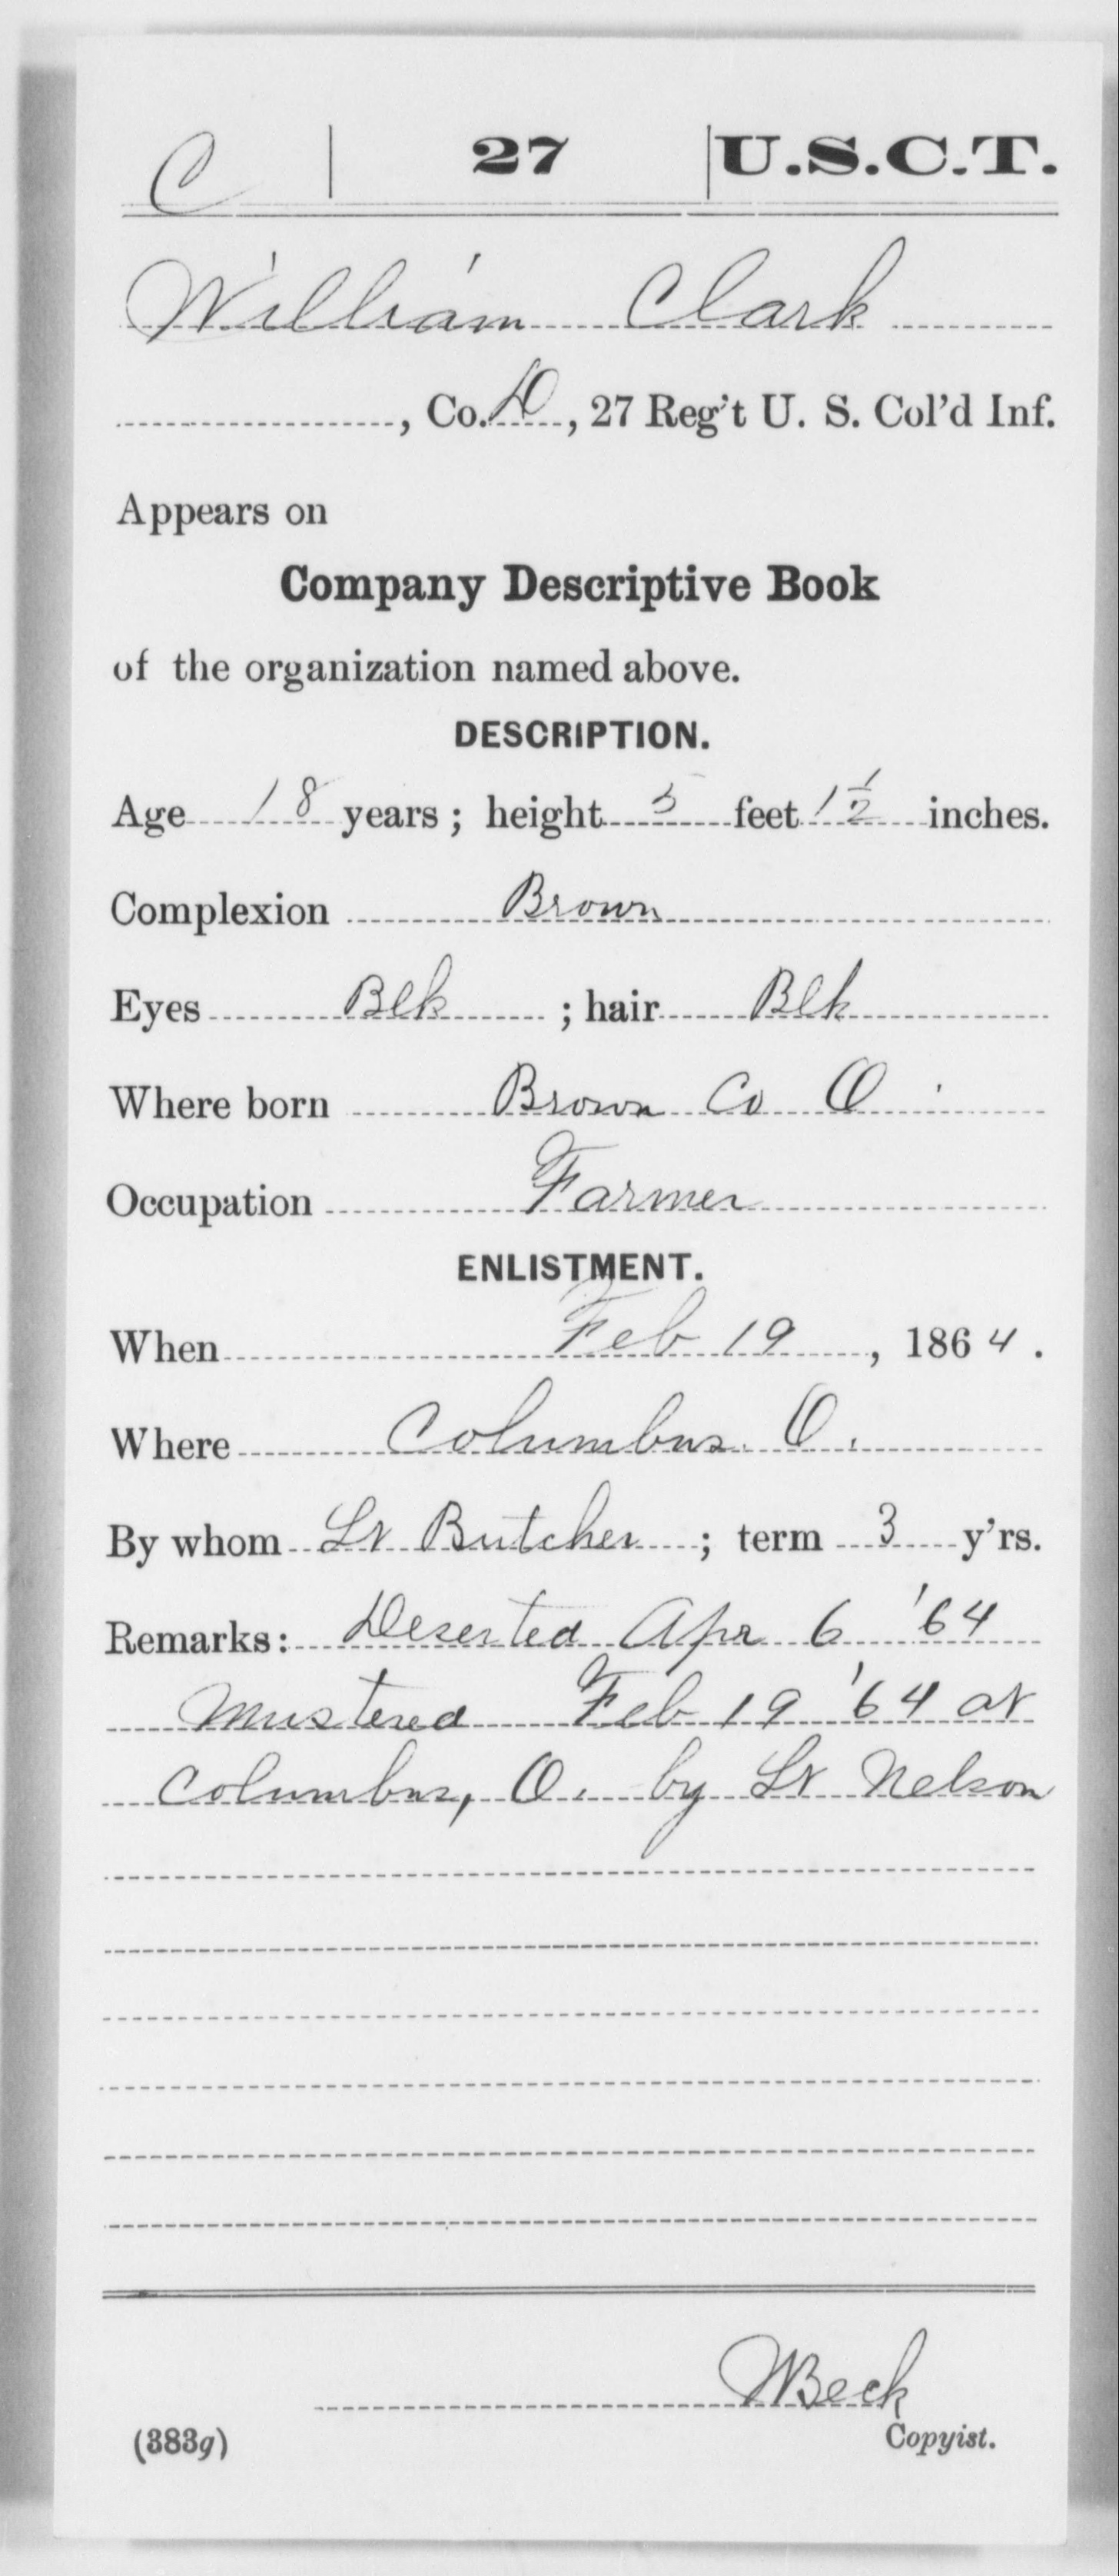 C | 27 | U.S.C.T.
William Clark
, Co. D, 27 Reg't U. S. Col'd Inf.
Appears on
Company Descriptive Book
of the organization named above.
DESCRIPTION.
Age 18 years; height 5 feet 1 1/2 inches.
Complexion Brown
Eyes Blk ; hair Blk
Where born Brown Co O
Occupation Farmer
ENLISTMENT.
When Feb 19, 1864.
Where Columbus. O.
By whom Lt Butcher ; term 3 y'rs.
Remarks: Deserted Apr 6 '64
Mustered Feb 19 '64 at
Columbus, O. by Lt Nelson
WBeck
(383g) Copyist.